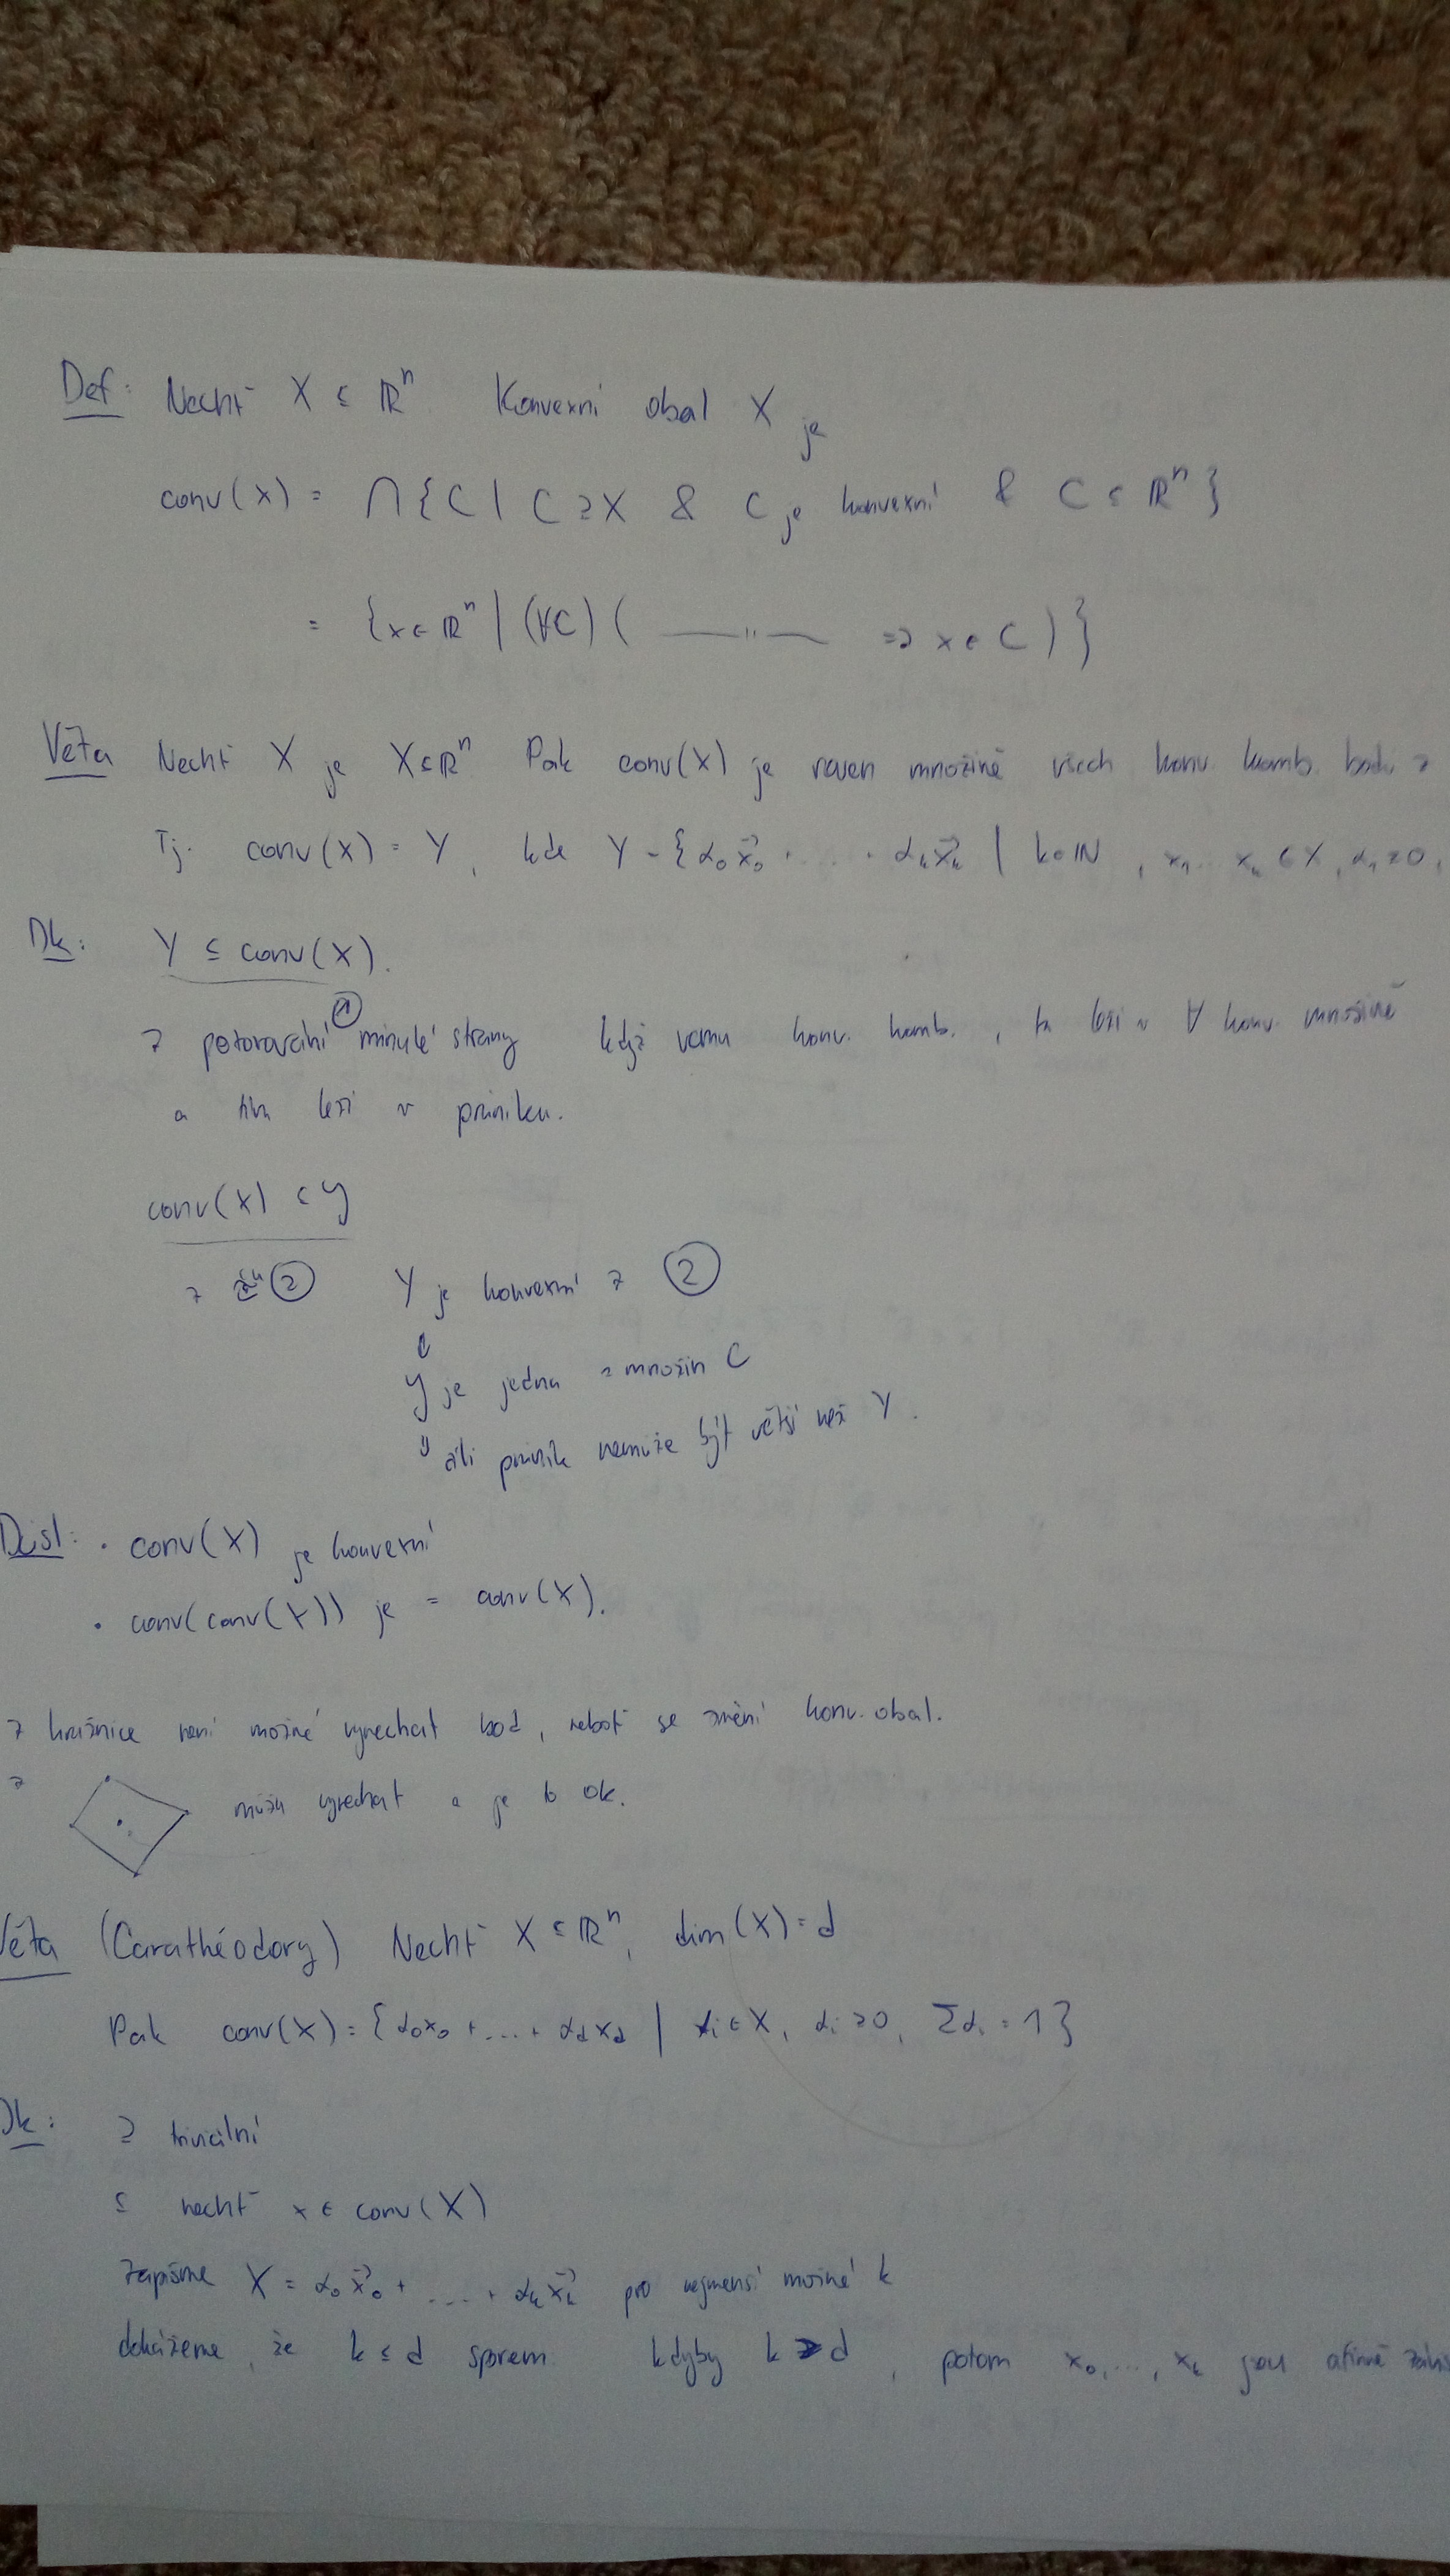 Def: Nechť X ⊆ ℝⁿ Konvexní obal X je
conv(X) = ∩{C | C ⊇ X & C je konvexní & C ⊆ ℝⁿ}
= {x ∈ ℝⁿ | (∀C) ( —"— => x ∈ C)}
Věta Nechť X je X ⊆ ℝⁿ Pak conv(X) je roven množině všech konv. komb. bodů z
Tj. conv(X) = Y, kde Y = {α₀x⃗₀ + ... + αₖx⃗ₖ | k ∈ ℕ, x₁ ... xₖ ∈ X, α₁ ≥ 0,
Dk: Y ⊆ conv(X).
z pozorování ① minulé strany když vemu konv. komb., tak leží v ∀ konv. množině
a tím leží v průniku.
conv(X) ⊂ Y
z ② Y je konvexní z ②
⇓
Y je jedna z množin C
⇓ čili průnik nemůže být větší než Y.
Důsl: • conv(X) je konvexní
• conv(conv(X)) je = conv(X).
z kružnice není možné vynechat bod, neboť se změní konv. obal.
z můžu vynechat a je to ok.
Věta (Carathéodory) Nechť X ⊆ ℝⁿ, dim(X) = d
Pak conv(X) = {α₀x₀ + ... + α_d x_d | xᵢ ∈ X, αᵢ ≥ 0, Σαᵢ = 1}
Dk: ⊇ triviální
⊆ nechť x ∈ conv(X)
zapišme X = α₀x⃗₀ + ... + αₖx⃗ₖ pro nejmenší možné k
dokážeme, že k ≤ d sporem kdyby k > d, potom x₀, ..., xₖ jsou afinně